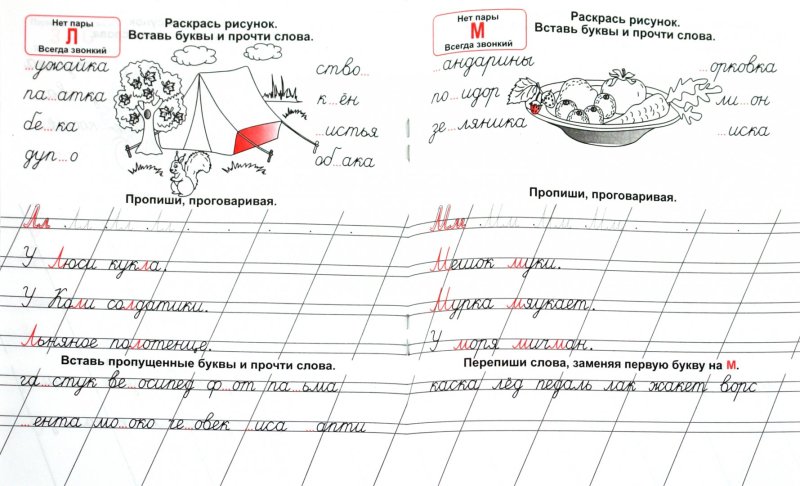 Нет пары
Л
Всегда звонкий
Раскрась рисунок.
Вставь буквы и прочти слова.
...ужайка
па...атка
бе...ка
дуп...о
ство...
к...ён
...истья
об...ака
Пропиши, проговаривая.
Лл Лл Лл Лл
У Люси кукла.
У Коли солдатики.
Льняное полотенце.
Вставь пропущенные буквы и прочти слова.
га...стук ве...осипед ф...от па...ьма
...ента мо...око че...овек ...иса ...апти
Нет пары
М
Всегда звонкий
Раскрась рисунок.
Вставь буквы и прочти слова.
...андарины
по...идор
зе...ляника
...орковка
ли...он
...иска
Пропиши, проговаривая.
Мм Мм Мм Мм
Мешок муки.
Мурка мяукает.
У моря мичман.
Перепиши слова, заменяя первую букву на М.
каска лёд педаль лак жакет ворс